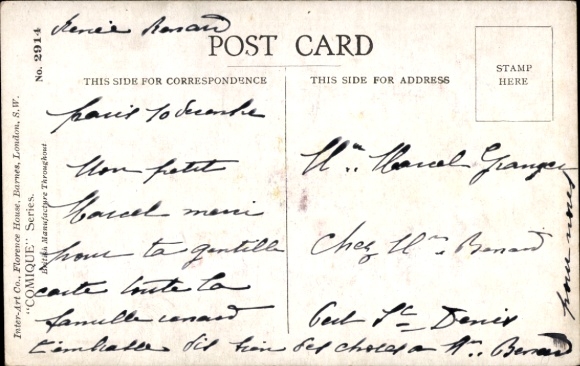 Renée Renard
POST CARD
THIS SIDE FOR CORRESPONDENCE
THIS SIDE FOR ADDRESS
STAMP
HERE
No. 2914
Inter-Art Co., Florence House, Barnes, London, S.W.
"COMIQUE" Series.
British Manufacture Throughout
paris 10 décembre
Mon petit
Marcel merci
pour ta gentille
carte toute la
famille renard
t'embrasse dis bien des choses a Mr. Benard
pour nous
Mr. Marcel Granger
Chez Mr. Benard
St Denis